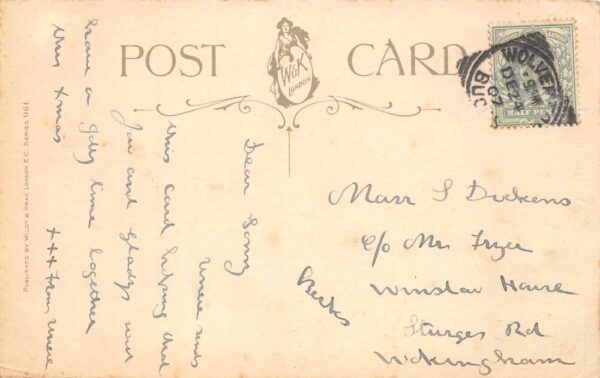 POST CARD
W&K
LONDON
WOLVER
DE 24
07
BUC
HALF PEN
PUBLISHED BY WILDT & KRAY, LONDON E.C. SERIES 961.
Dear Sonny
Unnie sends
this card hoping that
you and Gladys will
have a jolly time together
this Xmas
+++ from Unnie
Mast S Dickens
c/o Mr Fryer
Winslow House
Sturges Rd
Wokingham
Berks